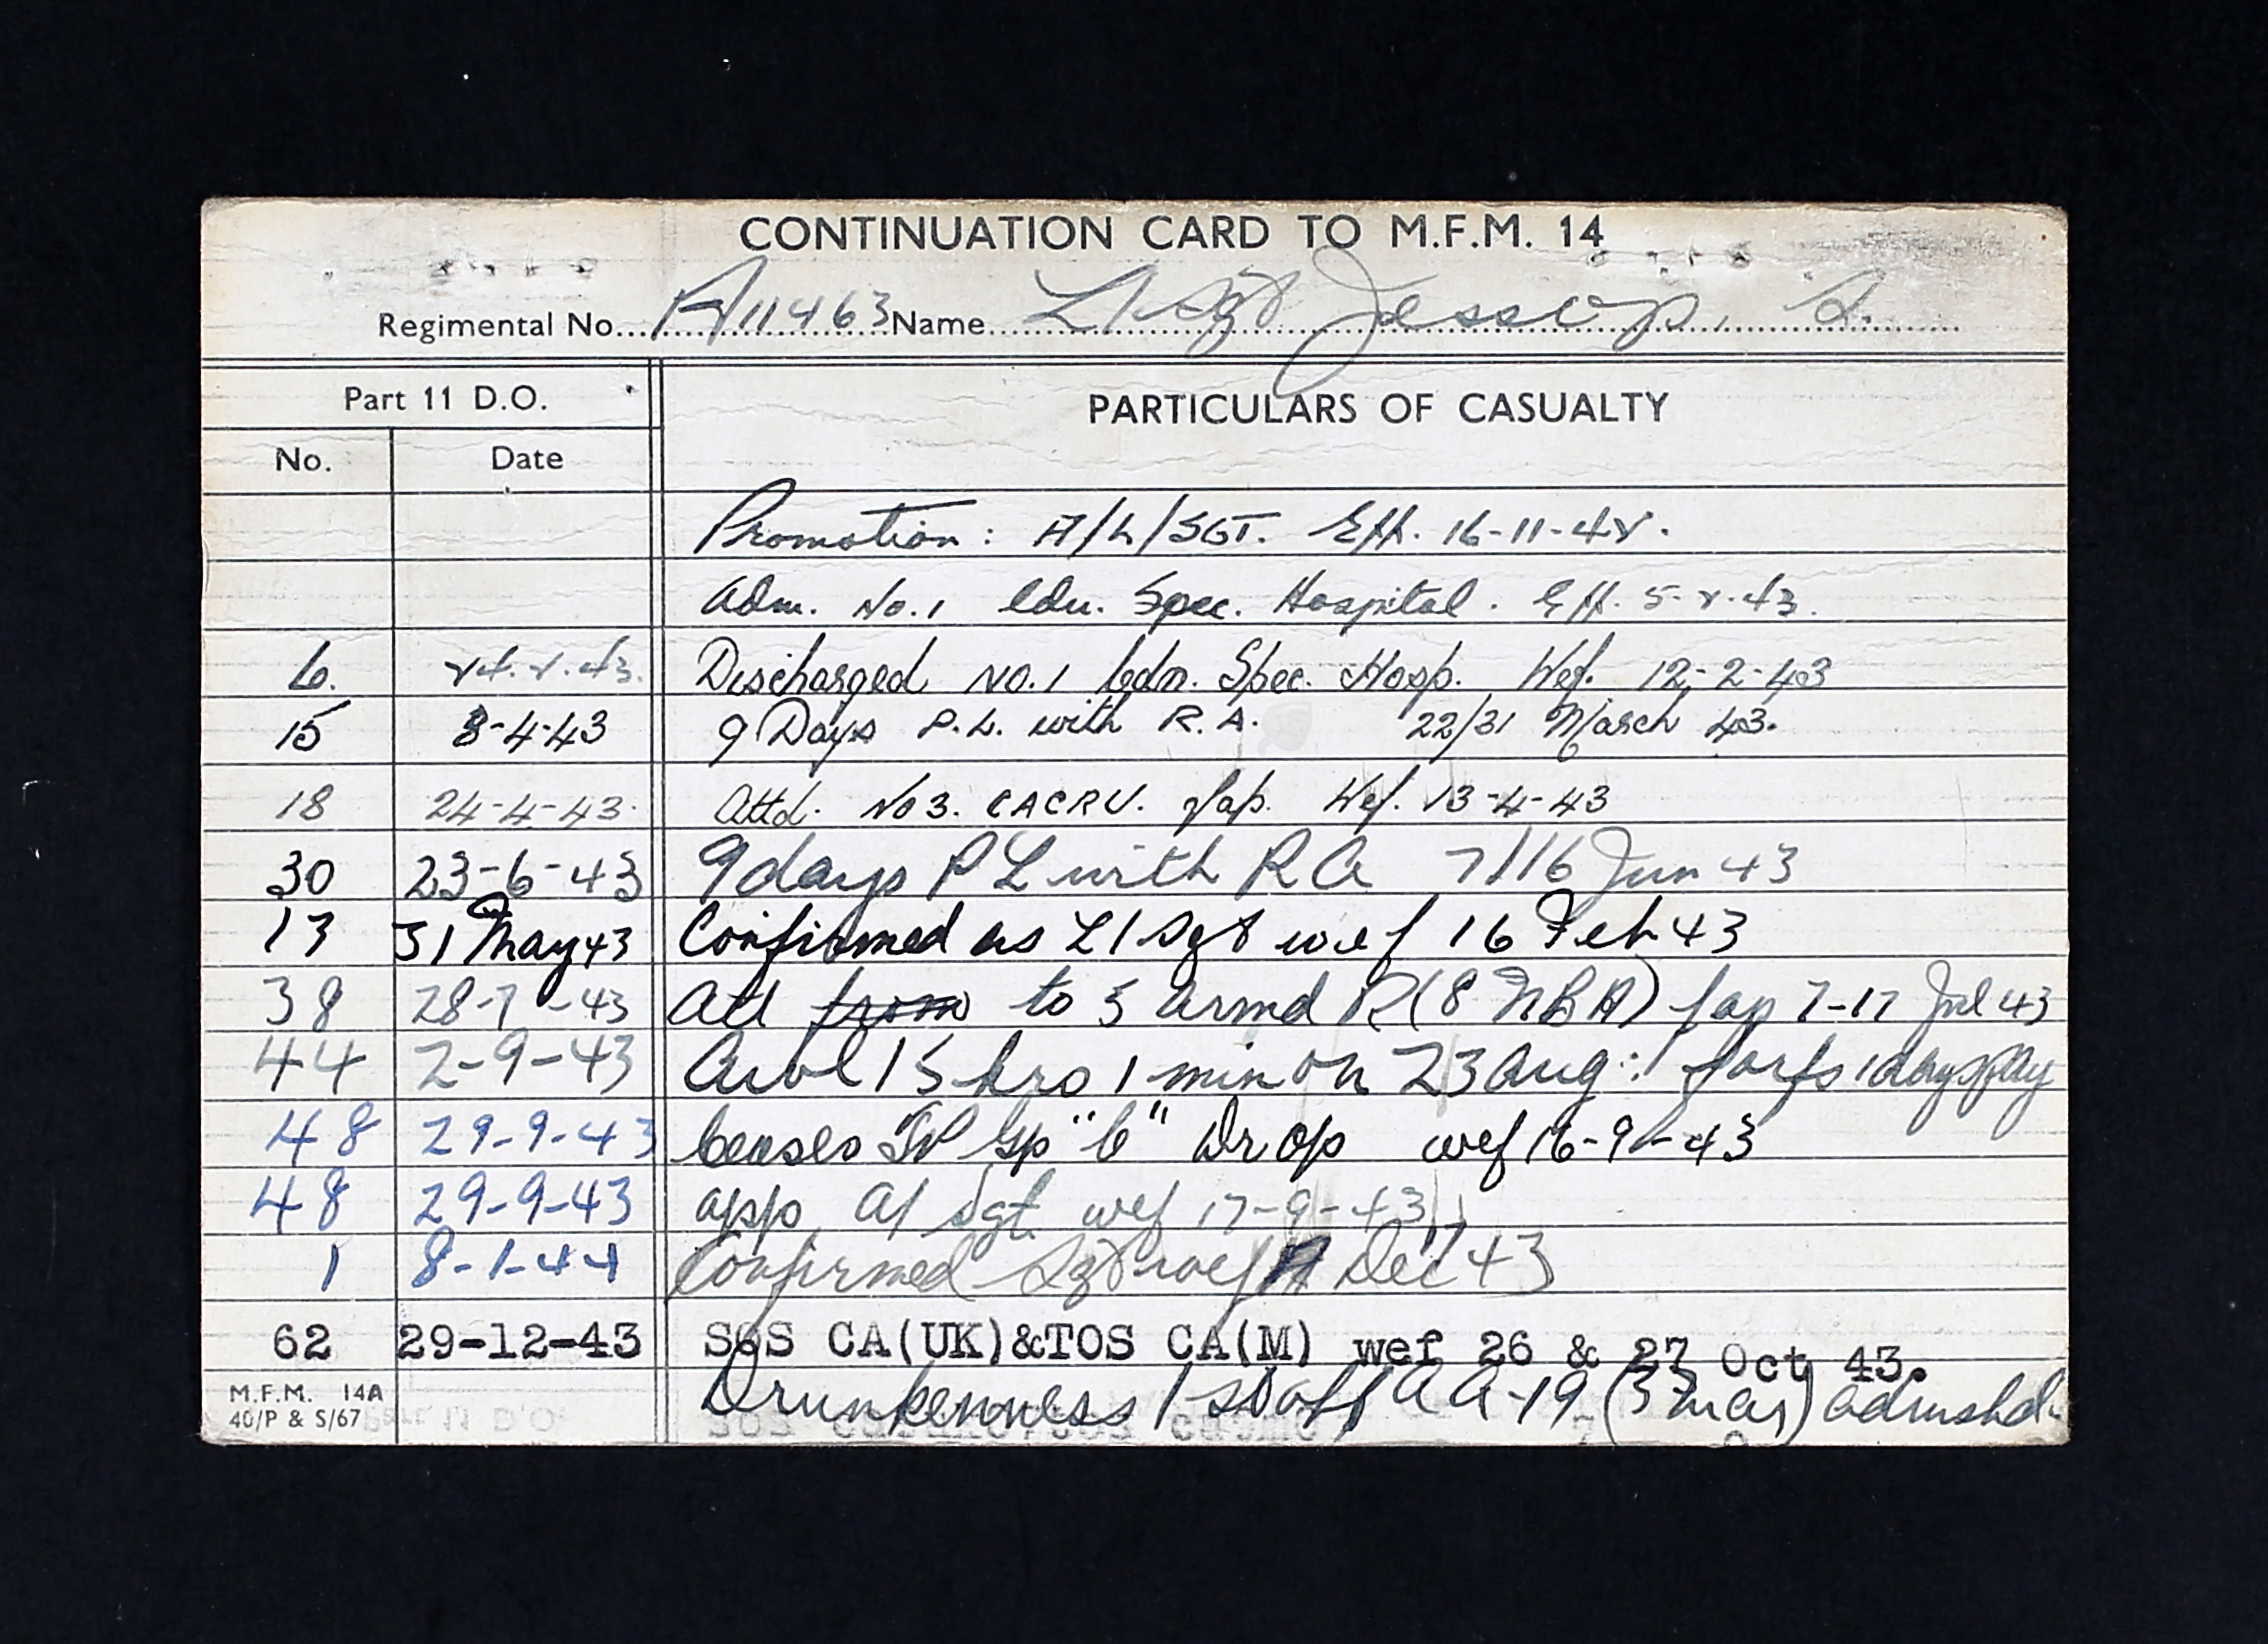 CONTINUATION CARD TO M.F.M. 14
Regimental No. A/11463 Name L/Sgt Jessop, A.
Part 11 D.O. PARTICULARS OF CASUALTY
No. Date
Promotion: A/L/SGT. Eff. 16-11-42.
Adm. No. 1 Cdn. Spec. Hospital. Eff. 5-2-43.
6. 24.2.43. Discharged No. 1 Cdn. Spec. Hosp. Wef. 12-2-43
15 8-4-43 9 Days P.L. with R.A. 22/31 March 43.
18 24-4-43. Attd. No 3. CACRU. fap. Wef. 13-4-43
30 23-6-43 9 days P L with R A 7/16 Jun 43
13 31 May 43 Confirmed as L/Sgt wef 16 Feb 43
38 28-7-43 Att from to 5 Armd R (8 NBH) fap 7-17 Jul 43
44 2-9-43 Awol 15 hrs 1 min on 23 Aug: forfs 1 days pay
48 29-9-43 Ceases TP Gp "C" Dr Op wef 16-9-43
48 29-9-43 app A/ Sgt. wef 17-9-43
1 8-1-44 Confirmed Sgt wef 17 Dec 43
62 29-12-43 SOS CA(UK)&TOS CA(M) wef 26 & 27 Oct 43.
M.F.M. 14A Drunkenness A A-19 (3 Mar) admshd.
40/P & S/67